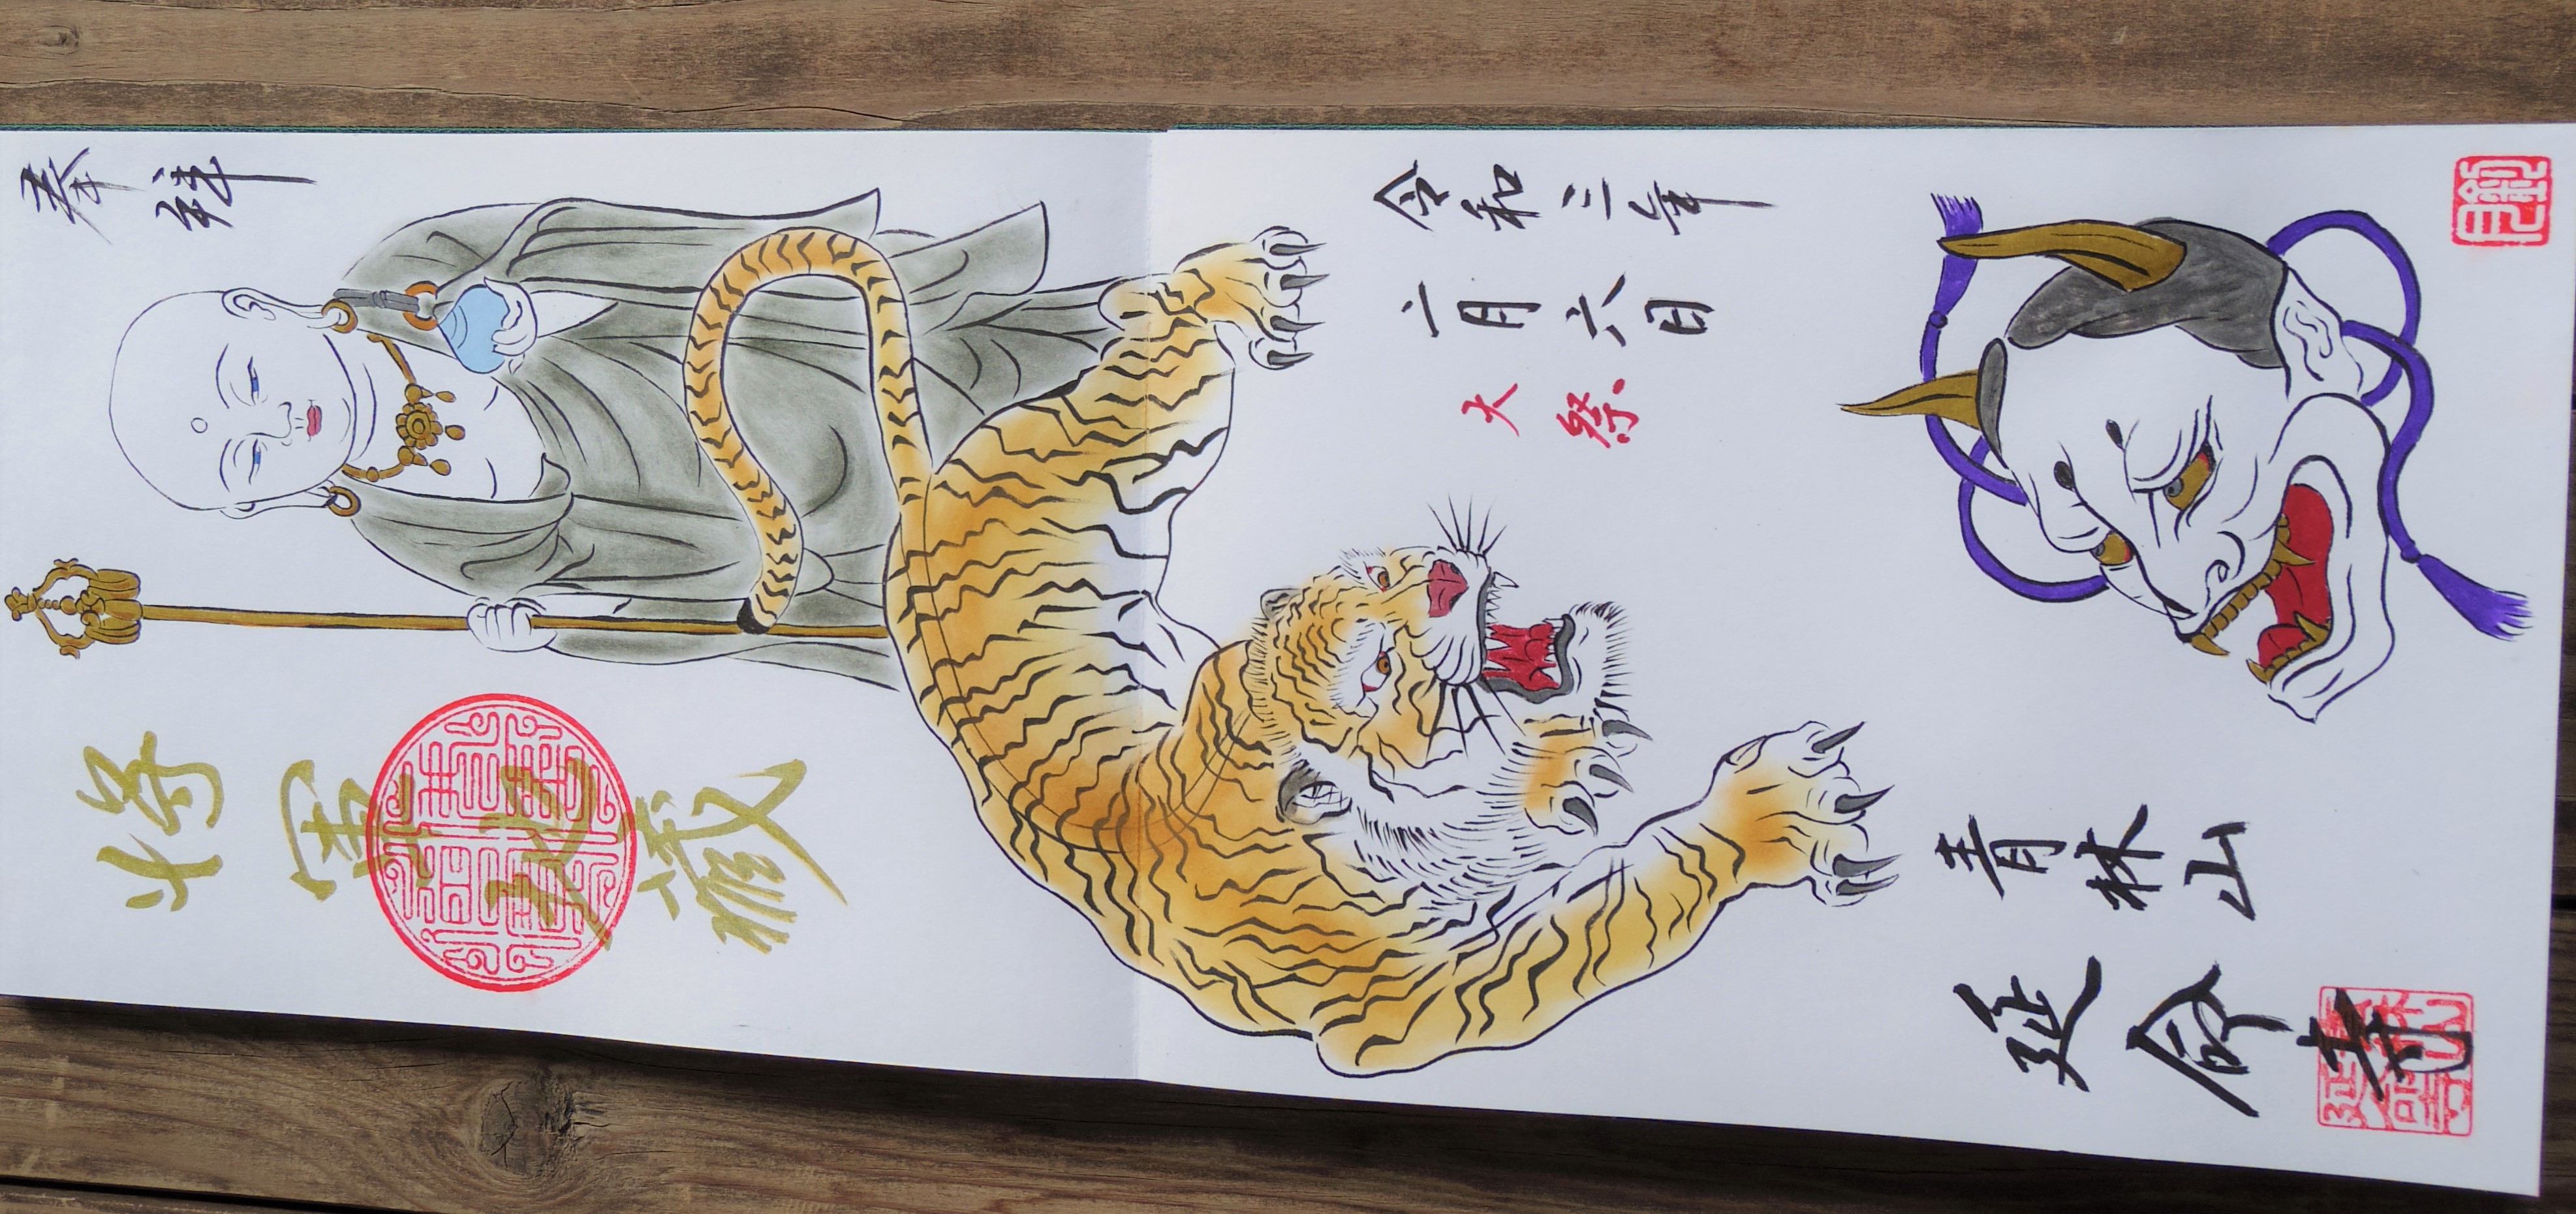 奉拝
令和三年
六月六日
大祭
将軍地蔵
青林山
延命寺